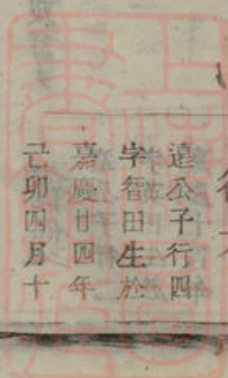 達公子行四
字智田生於
嘉慶廿四年
己卯四月十